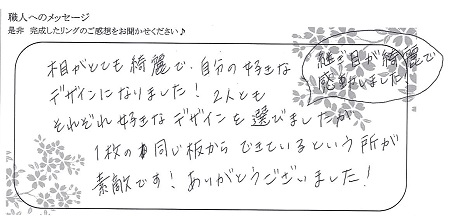 職人へのメッセージ
是非 完成したリングのご感想をお聞かせください♪
継ぎ目が綺麗で
感動しました!
木目がとても綺麗で、自分の好きな
デザインになりました! 2人とも
それぞれ好きなデザインを選びましたが
1枚の同じ板からできているという所が
素敵です! ありがとうございました!